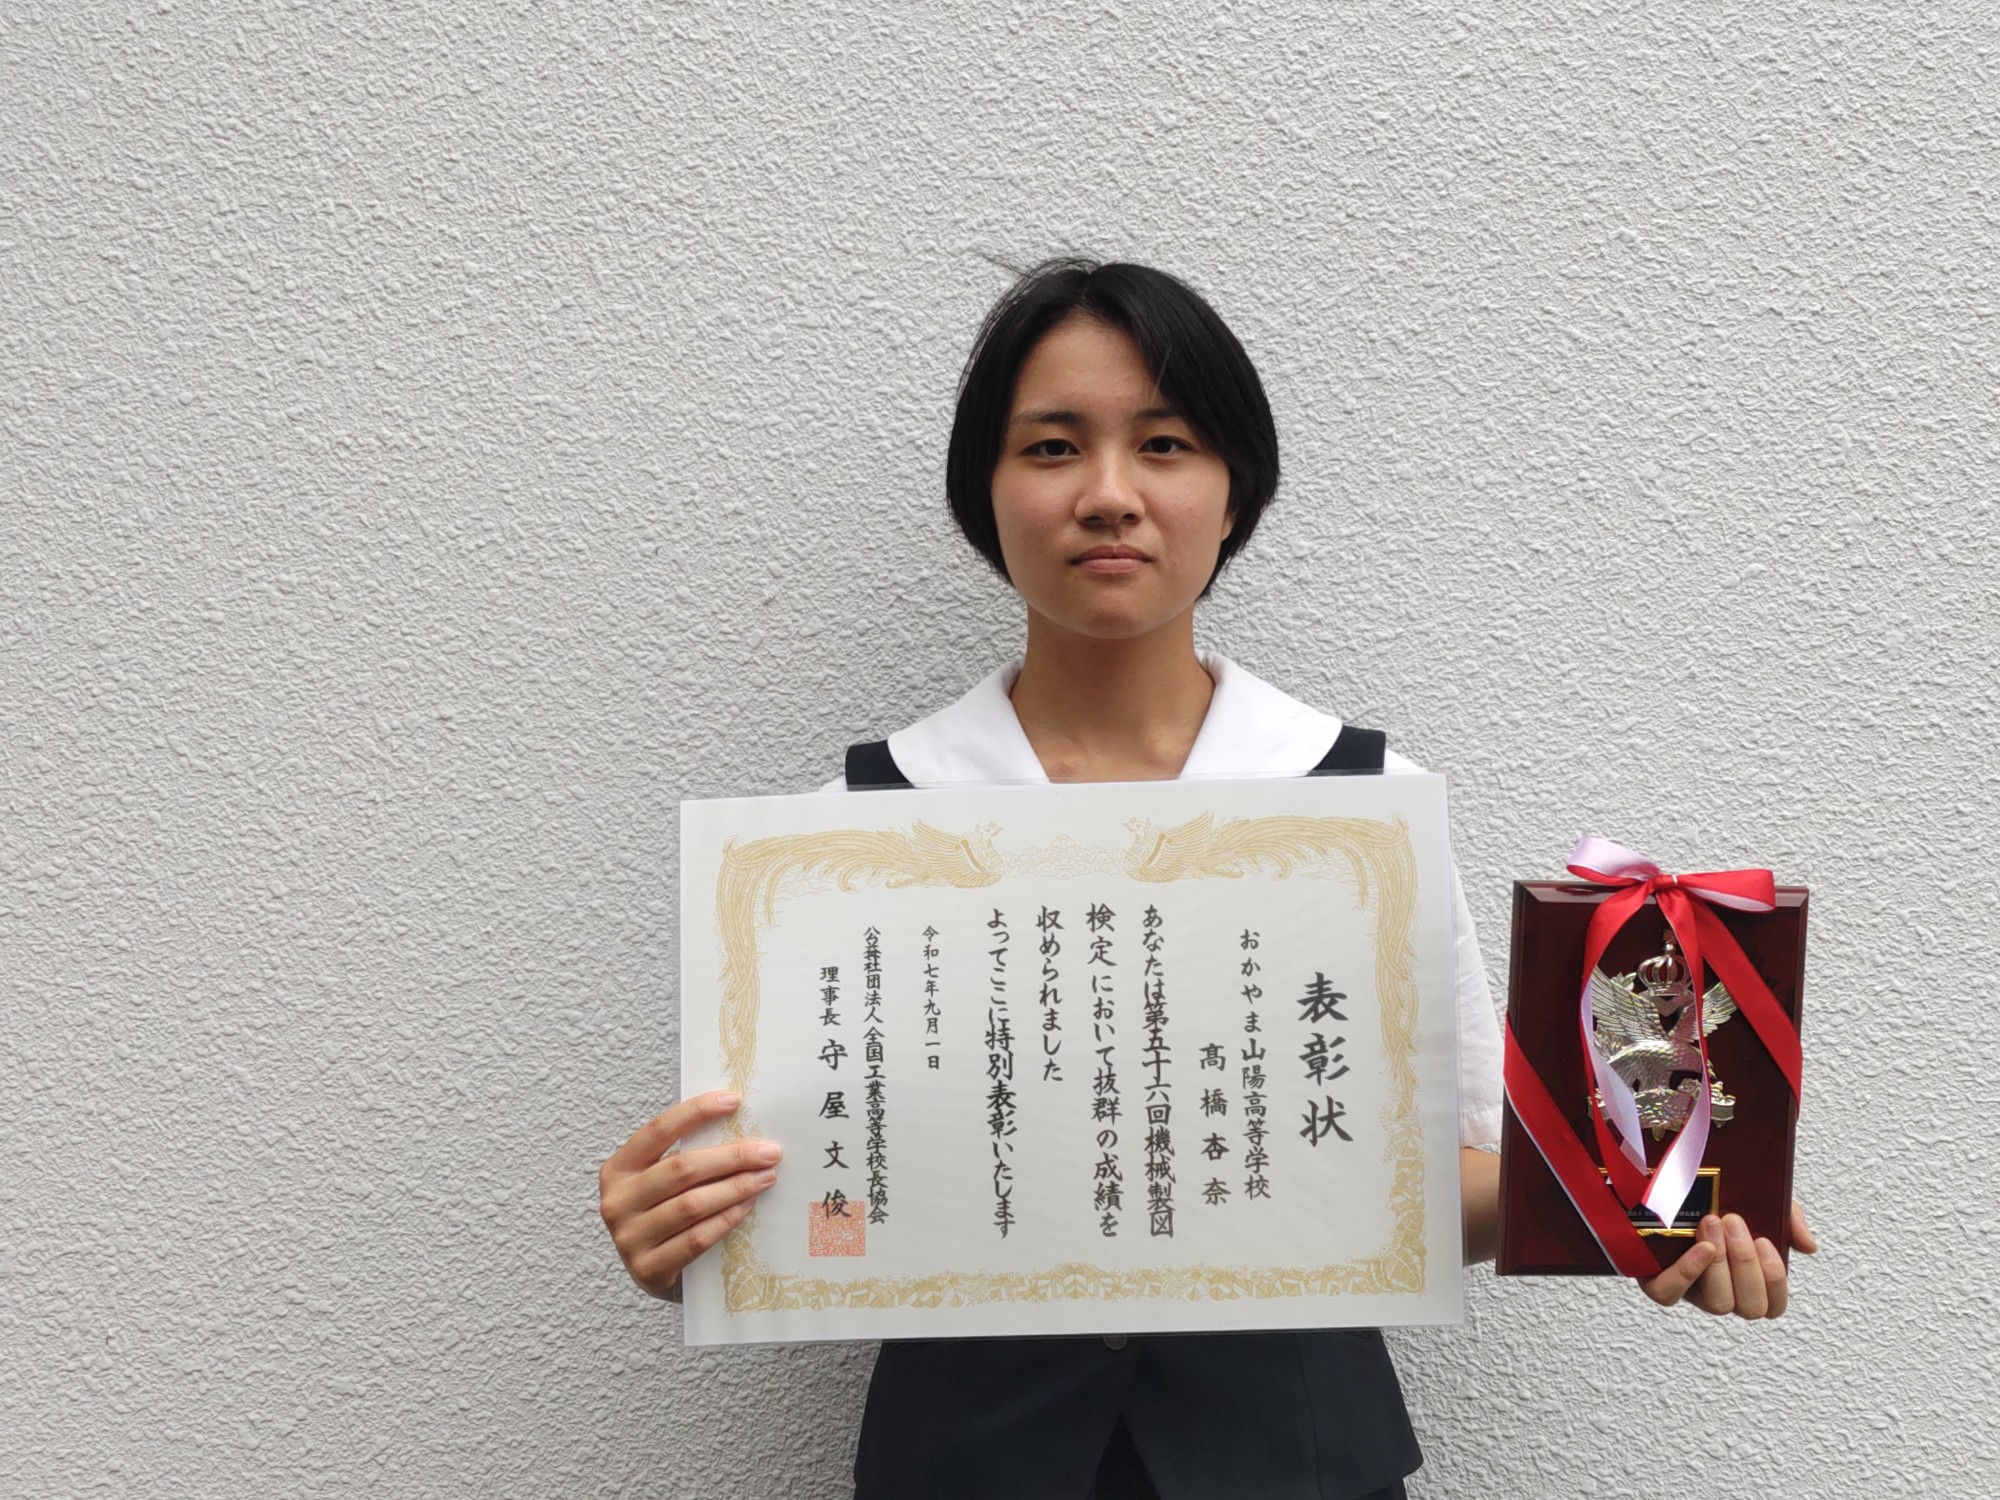 表彰状
おかやま山陽高等学校
髙橋杏奈
あなたは第五十六回機械製図
検定において抜群の成績を
収められました
よってここに特別表彰いたします
令和七年九月一日
公益社団法人 全国工業高等学校長協会
理事長 守屋文俊